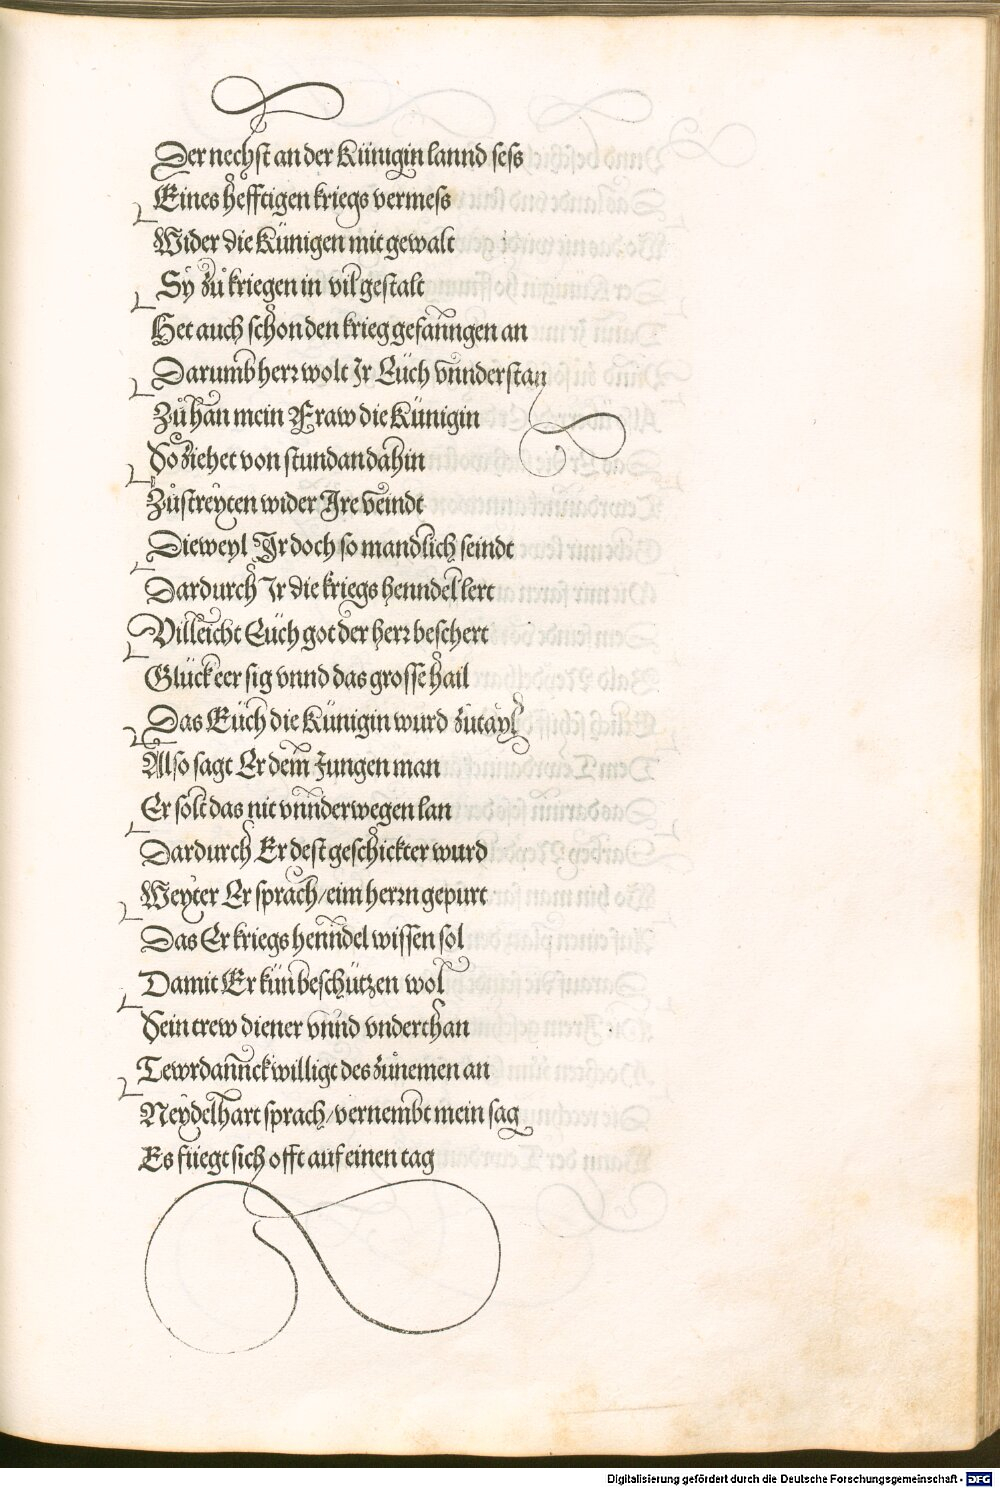 Der nechst an der Künigin lannd sess
Eines hefftigen kriegs vermess
Wider die Künigen mit gewalt
Sÿ zů kriegen in vil gestalt
Het auch schon den krieg gefanngen an
Darumb herr wolt Ir Euch vnnderstan
Zů han mein Fraw die Künigin
So ziehet von stundan dahin
Zů streÿten wider Ire veindt
Dieweyl Ir doch so mandlich seindt
Dardurch Ir die kriegs henndel lert
Villeicht Euch got der herr beschert
Glück eer sig vnnd das grosse hail
Das Euch die Künigin wurd zůtayl
Also sagt Er dem Jungen man
Er solt das nit vnnderwegen lan
Dardurch Er dest geschickter wurd
Weyter Er sprach/eim herrn gepurt
Das Er kriegs henndel wissen sol
Damit Er kün beschützen wol
Sein trew diener vnnd vnderthan
Tewrdannck willigt des zůnemen an
Neydelhart sprach/vernembt mein sag
Es fuegt sich offt auf einen tag
Digitalisierung gefördert durch die Deutsche Forschungsgemeinschaft - DFG